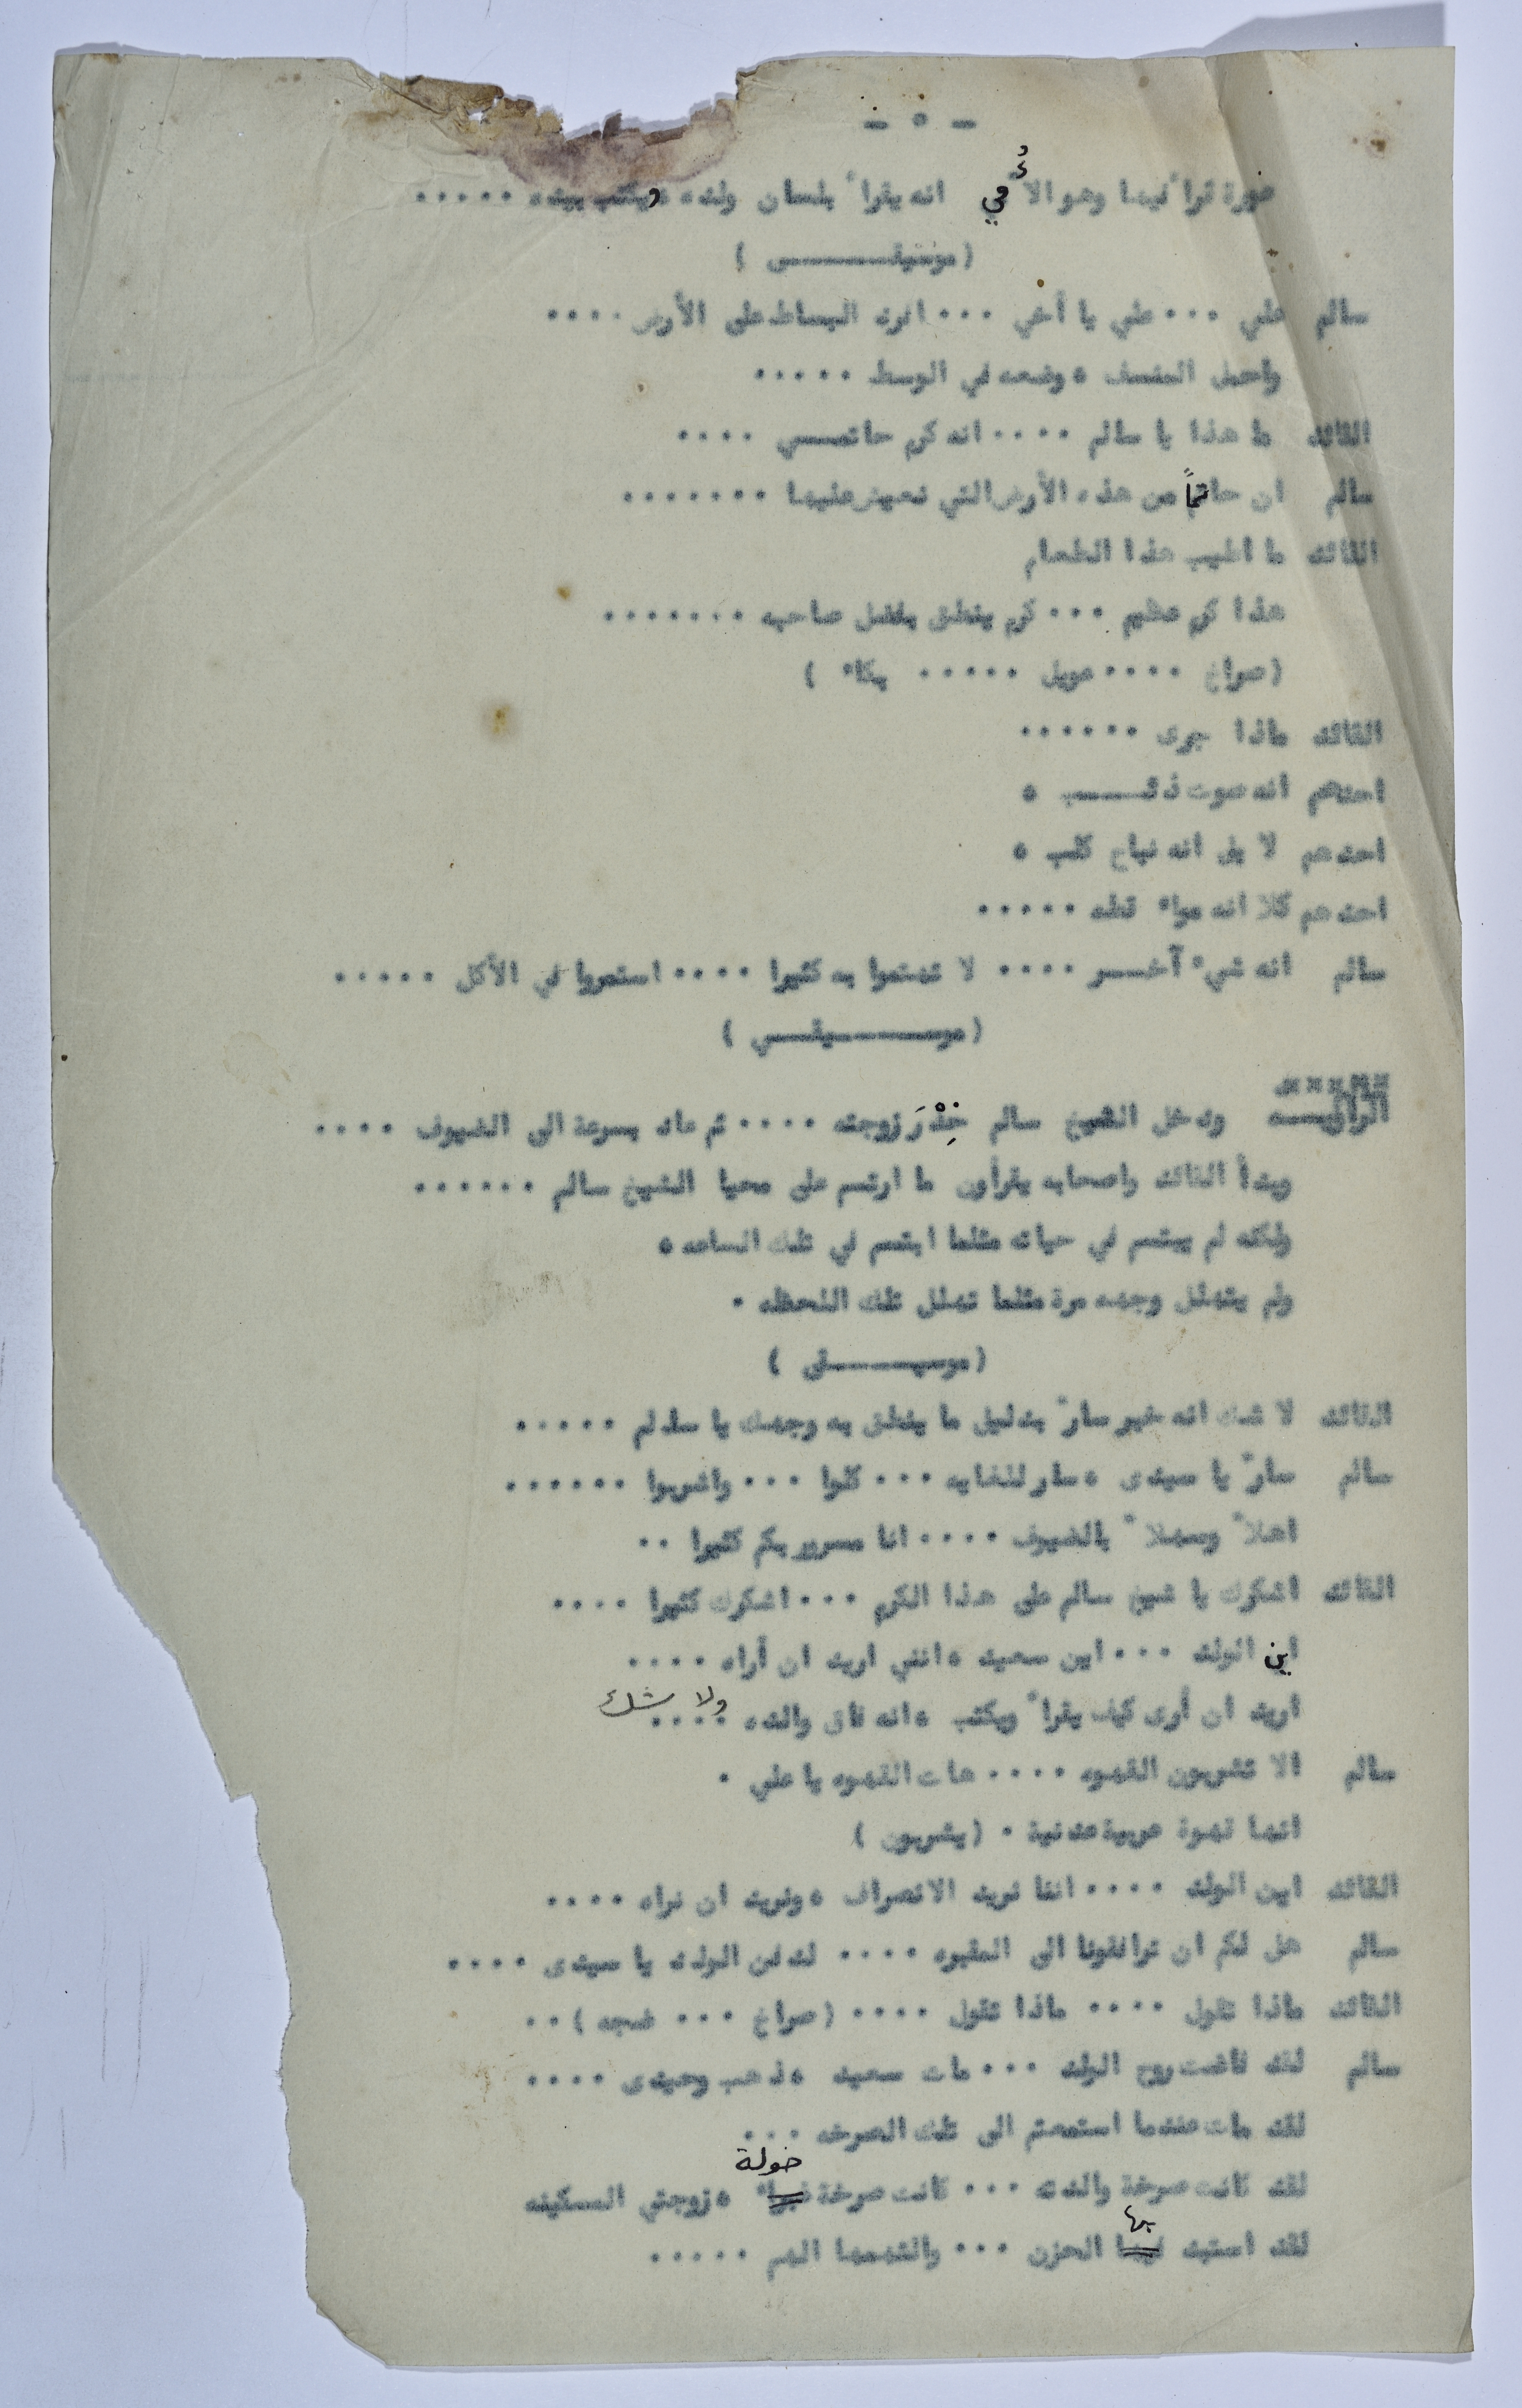 - ٥ -
وهو الأُمي انه يقرأ بلسان ولده ويكتب بيده .....
( موسيقـــــى )
سالم علي ... علي يا أخي ... افرد البساط على الأرض ....
واحمل المنسف ، وضعه في الوسط .....
القائد ما هذا يا سالم .... انه كرم حاتمـــي ....
سالم ان حاتماً من هذه الأرض التي نعيش عليها .......
القائد ما اطيب هذا الطعام
هذا كرم عظيم ... كرم ينطق بفضل صاحبه .......
( صراخ .... عويل ..... بكاء )
القائد ماذا جرى ......
احدهم انه صوت ذئـــــب ،
احدهم لا بل انه نباح كلب ،
احدهم كلا انه مواء قطه .....
سالم انه شيء آخـــر .... لا تهتموا به كثيرا .... استمروا في الأكل .....
( موســـــيقـــى )
الراويـــه ودخل الشيخ سالم خِدْرَ زوجته .... ثم عاد بسرعة الى الضيوف ....
وبدأ القائد واصحابه يقرأون ما ارتسم على محيا الشيخ سالم ......
ولكنه لم يبتسم في حياته مثلما ابتسم في تلك الساعه ،
ولم يتهلل وجهه مرة مثلما تهلل تلك اللحظه .
( موسيـــــقى )
القائد لا شك انه خبر سارّ بدليل ما ينطق به وجهك يا سالم .....
سالم سارّ يا سيدى ، سار للغايه ... كلوا ... واشربوا ......
اهلاً وسهلاً بالضيوف .... انا مسرور بكم كثيرا ..
القائد اشكرك يا شيخ سالم على هذا الكرم ... اشكرك كثيرا ....
اين الولد ... اين سعيد ، انني اريد ان أراه ....
اريد ان أرى كيف يقرأ ويكتب ، انه فاق والده .... ولا شك
سالم الا تشربون القهوه .... هات القهوه يا علي .
انها قهوة عربية عدنية . ( يشربون )
القائد اين الولد .... اننا نريد الانصراف ، ونريد ان نراه ....
سالم هل لكم ان ترافقونا الى المقبره .... لدفن الولد يا سيدى ....
القائد ماذا تقول .... ماذا تقول .... ( صراخ ... ضجه ) ..
سالم لقد فاضت روح الولد ... مات سعيد ، ذهب وحيدى ....
لقد مات عندما استمعتم الى تلك الصرخه ...
خولة
لقد كانت صرخة والدته ... كانت صرخة ، زوجتي المسكينه
بها
لقد استبد الحزن ... والتهمها الهم .....